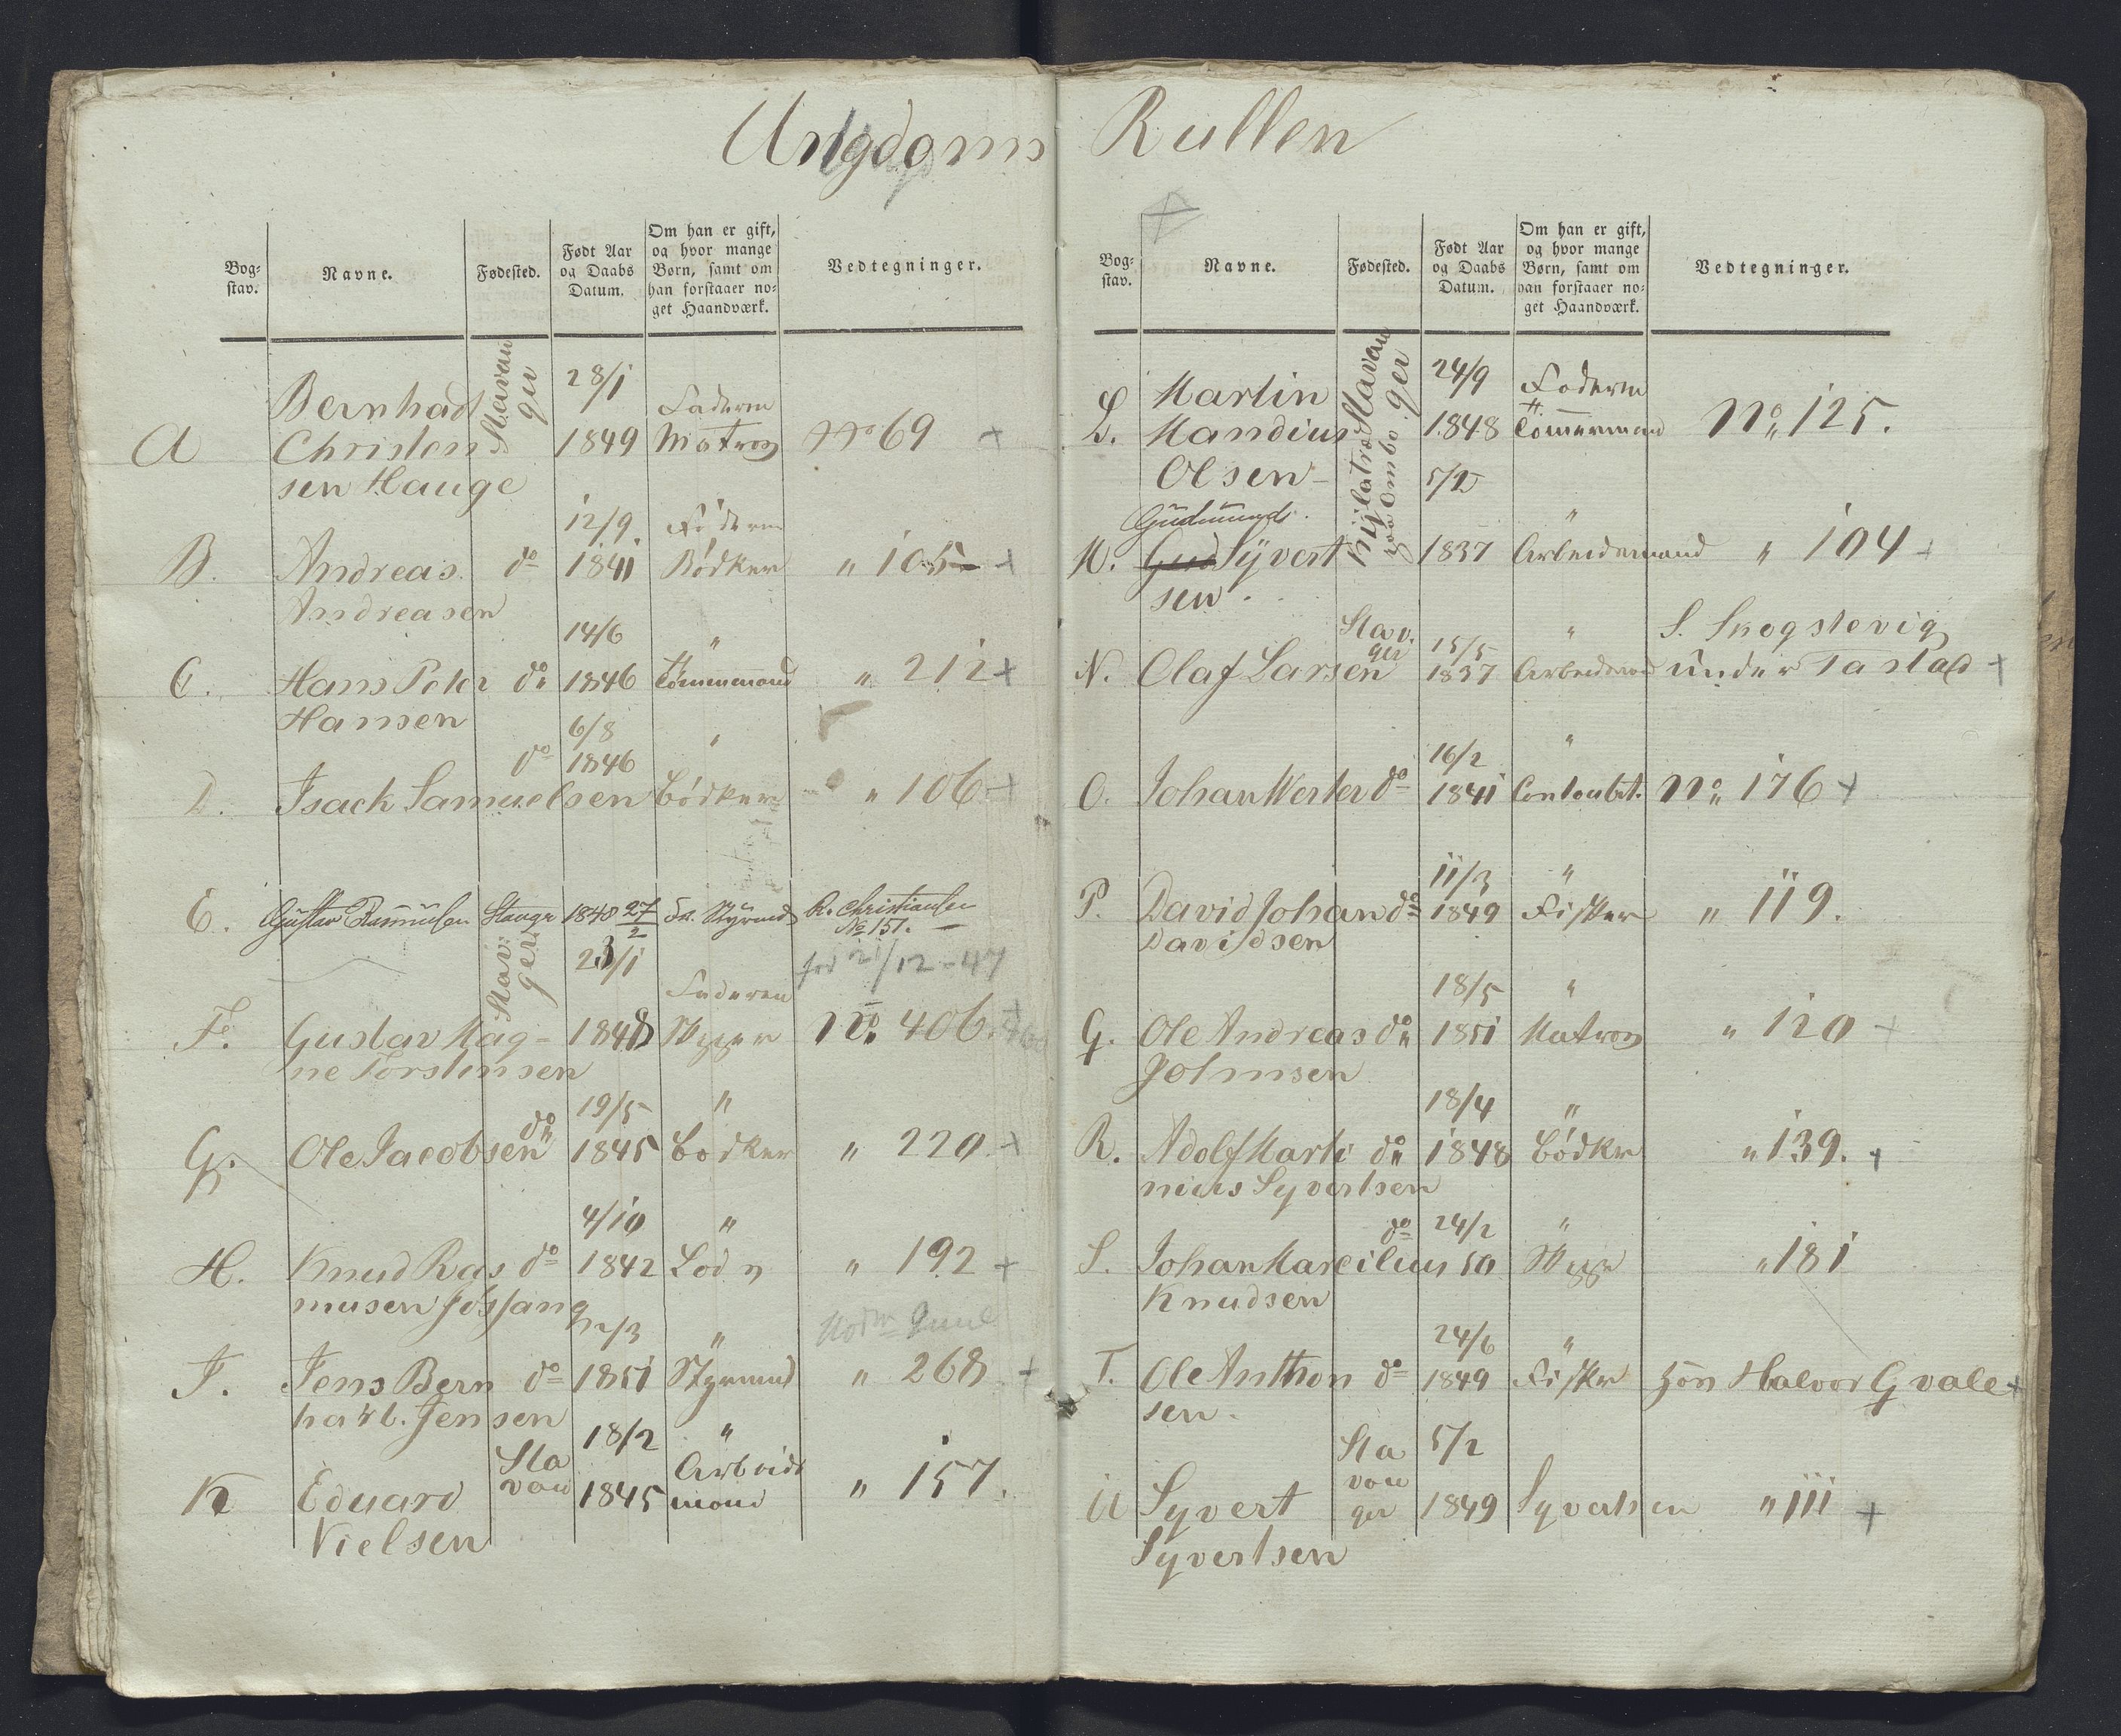 Ungdoms Rullen
Bog-
stav.
Navne.
Fødested.
Født Aar
og Daabs
Datum.
Om han er gift,
og hvor mange
Børn, samt om
han forstaaer no-
get Haandværk.
Vedtegninger.
A
Bernhad
Christen
sen Hauge
Stavan
ger
28/1
1849
Faderen
Matros
No 69 +
B.
Andreas
Andreasen
do
12/9
1841
Faderen
Bödker
" 105 +
C.
Hans Peter
Hansen
do
14/6
1846
"
Tömmmand
" 212 +
D.
Isack Samuelsen
do
6/8
1846
"
Bödker
" 106 +
E.
Gustav Rasmussen
Stangr
1848 27/2
Fa. Styrmd
R. Christiansen
No 151.
F.
Gustav Mag-
ne Torstensen
Stav.
ger
23/1
1848
Faderen
Skyper
fød 21/12-47
No. 406. +
G.
Ole Jacobsen
do
19/5
1845
"
Bödker
" 220 +
H.
Knud Ras
musen Jøssang
do
4/10
1842
"
Lods
" 192 +
I.
Jens Bern
hart. Jensen
do
12/3
1851
"
Styrmd
" 268 +
K
Eduard
Nielsen
Sta
van
18/2
1845
"
Arbeids
mand
" 157.
Bog-
stav.
Navne.
Fødested.
Født Aar
og Daabs
Datum.
Om han er gift,
og hvor mange
Børn, samt om
han forstaaer no-
get Haandværk.
Vedtegninger.
L.
Martin
Mandius
Olsen
Stavan
ger
24/9
1848
Faderen
Tömmermand
No. 125.
M.
Gudmund
Syvert
sen.
Ombo
5/12
1837
"
Arbeidsmand
" 104 +
N.
Olaf Larsen
Stav.
ger
15/5
1837
"
Arbeidsmd
S. Skogstevig
under Tastad +
O.
Johan Wester
do
16/2
1841
"
Contoubet.
No. 176 +
P.
David Johan
Davidsen
do
11/3
1849
"
Fisker
" 119.
Q.
Ole Andreas
Johnsen
do
18/5
1851
"
Matros
" 120 +
R.
Adolf Marti
nius Syvertsen
do
18/4
1848
"
Bödkr
" 139. +
S.
Johan Marcilius
Knudsen
do
24/2
50
"
Skypr
" 181
T.
Ole Anthon
sen.
do
24/6
1849
"
Fiskr
hos Halvor Gvale +
U
Syvert
Syvertsen
Sta
van
ger
5/2
1849
Syvertsen
" 111 +